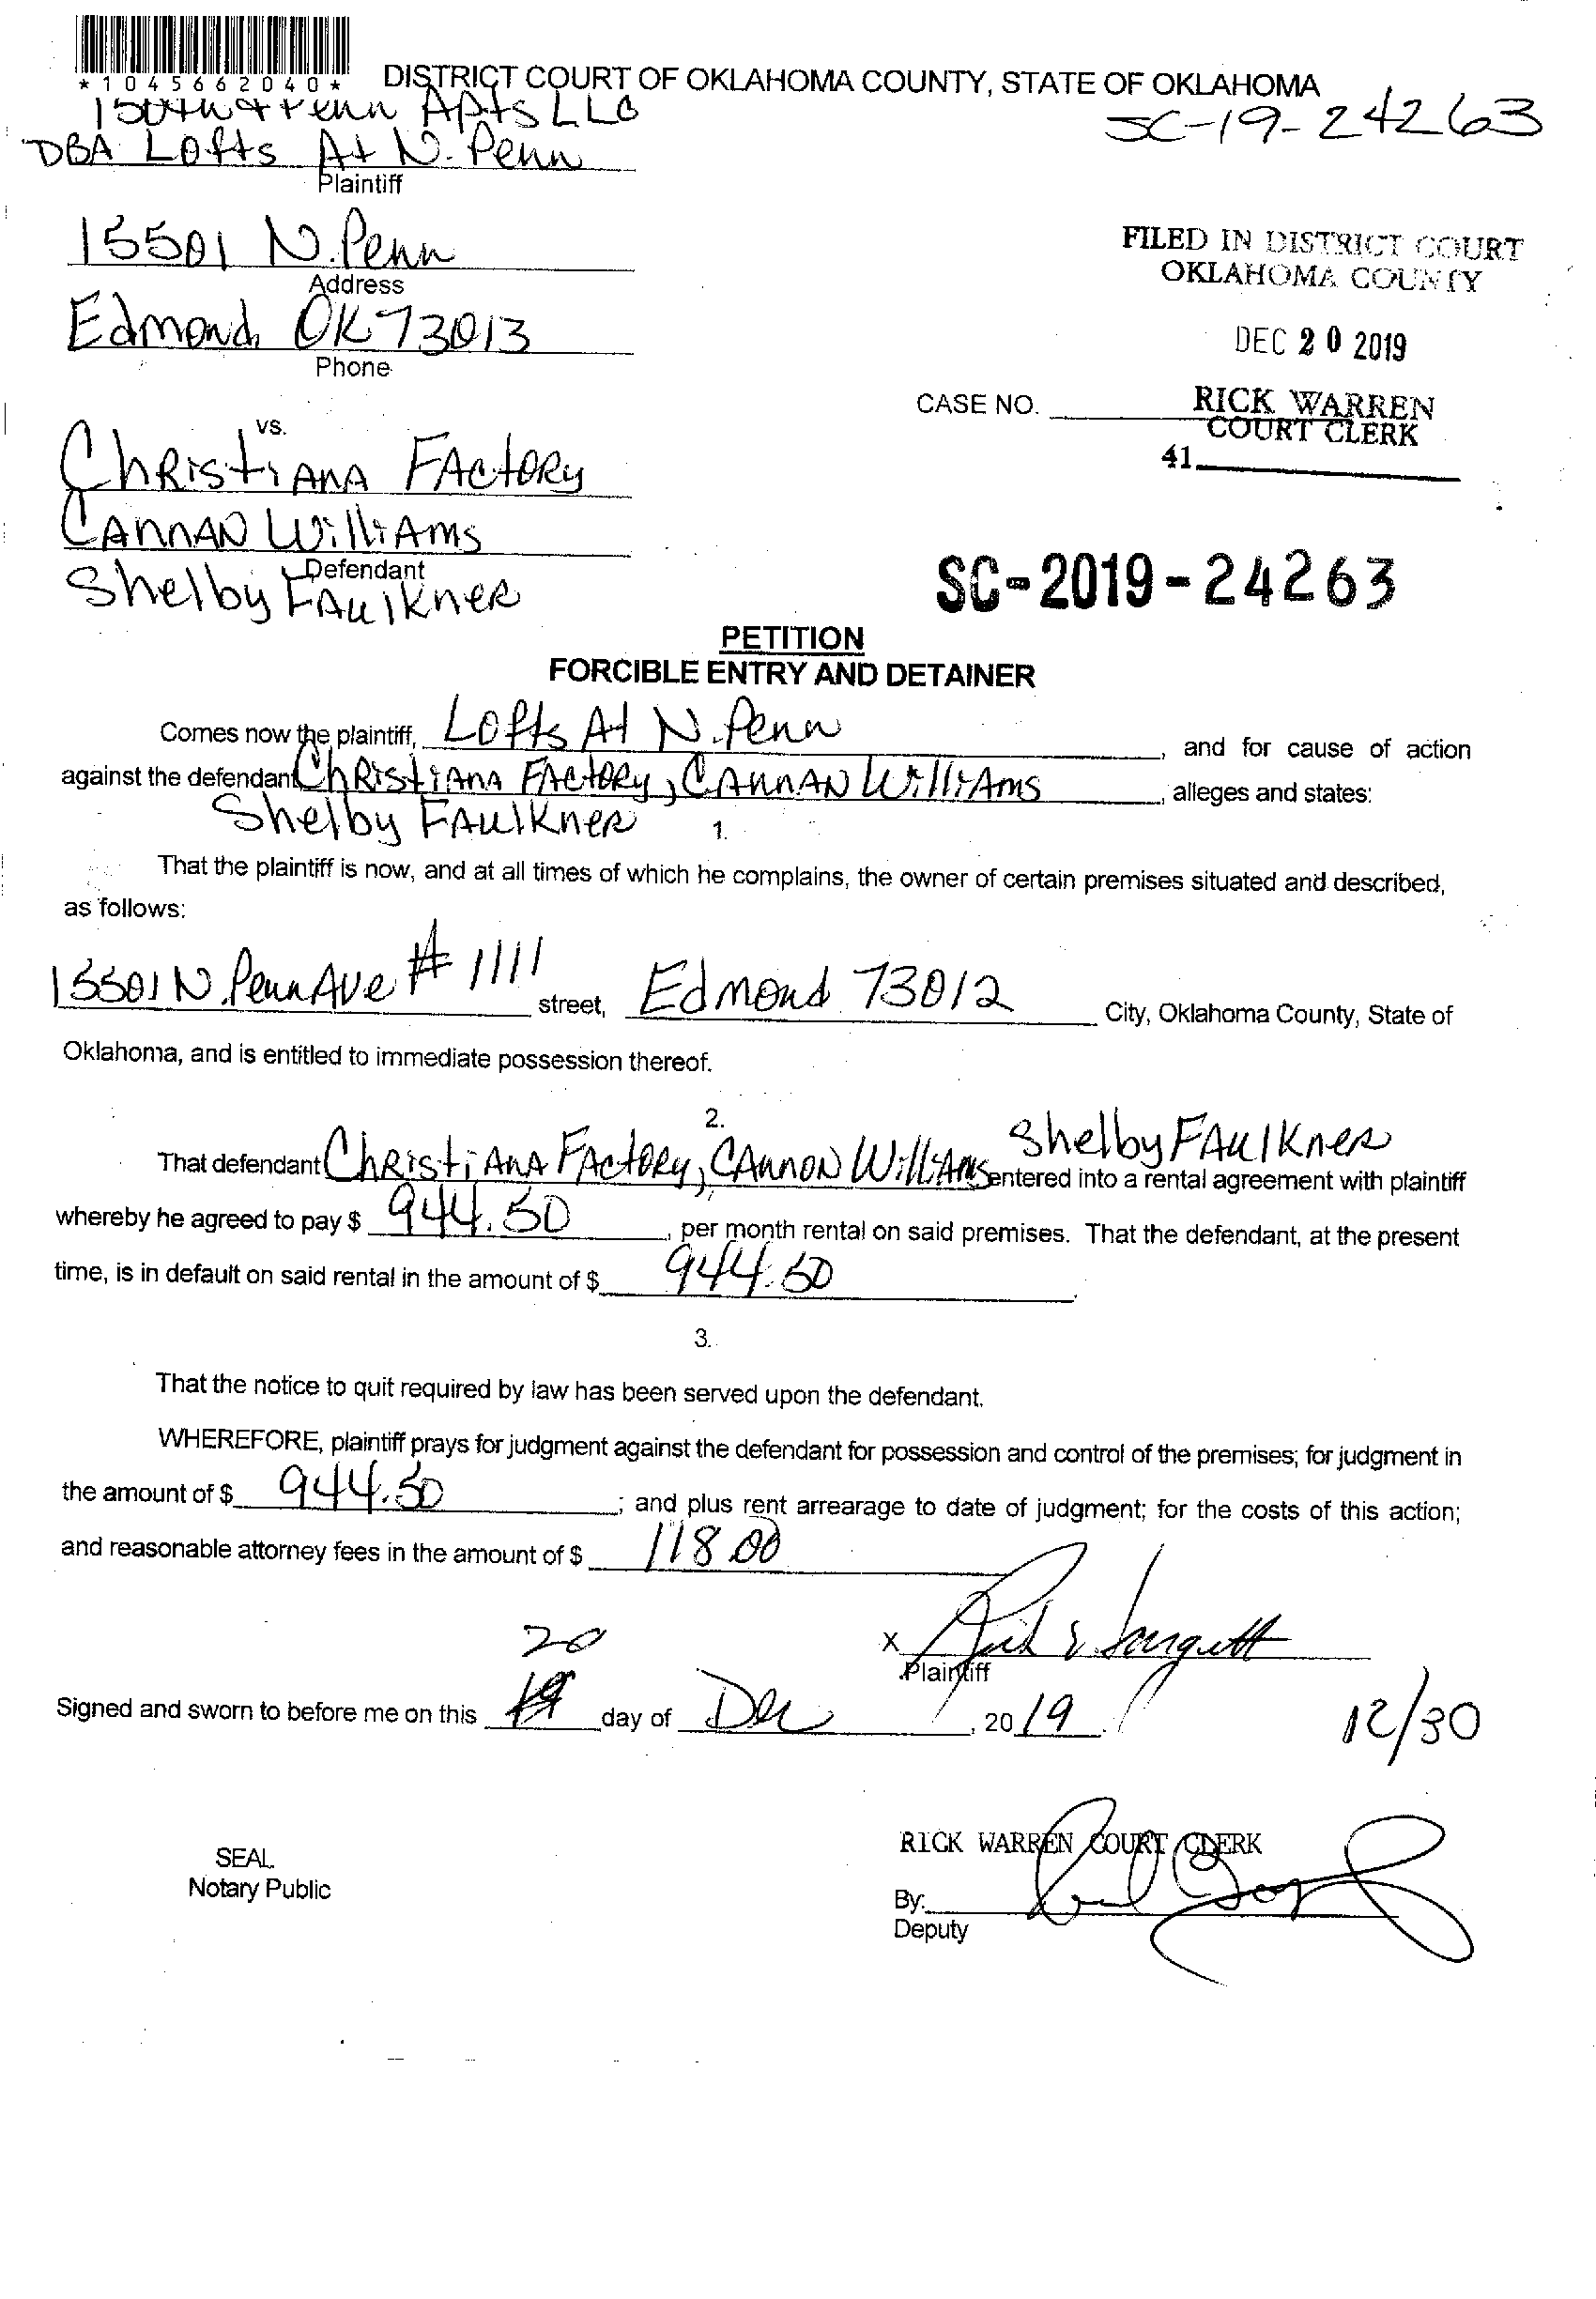 *1045662040*
DISTRICT COURT OF OKLAHOMA COUNTY, STATE OF OKLAHOMA
150th & Penn Apts LLC
SC-19-24263
DBA Lofts At N. Penn
Plaintiff
15501 N. Penn
Address
FILED IN DISTRICT COURT
OKLAHOMA COUNTY
Edmond, OK 73013
Phone
DEC 20 2019
CASE NO.
RICK WARREN
COURT CLERK
41
vs.
Christiana Factory
Cannan Williams
Defendant
Shelby Faulkner
SC-2019-24263
PETITION
FORCIBLE ENTRY AND DETAINER
Comes now the plaintiff, Lofts At N. Penn, and for cause of action
against the defendant Christiana Factory, Cannan Williams, alleges and states:
Shelby Faulkner
1.
That the plaintiff is now, and at all times of which he complains, the owner of certain premises situated and described,
as follows:
15501 N. Penn Ave # 1111 street, Edmond 73012 City, Oklahoma County, State of
Oklahoma, and is entitled to immediate possession thereof.
2.
Shelby Faulkner
That defendant Christiana Factory, Cannon Williams entered into a rental agreement with plaintiff
whereby he agreed to pay $ 944.50, per month rental on said premises. That the defendant, at the present
time, is in default on said rental in the amount of $ 944.50.
3.
That the notice to quit required by law has been served upon the defendant.
WHEREFORE, plaintiff prays for judgment against the defendant for possession and control of the premises; for judgment in
the amount of $ 944.50; and plus rent arrearage to date of judgment; for the costs of this action;
and reasonable attorney fees in the amount of $ 118.00
x
Plaintiff
20
Signed and sworn to before me on this 19 day of Dec, 2019.
12/30
SEAL
Notary Public
RICK WARREN COURT CLERK
By:
Deputy